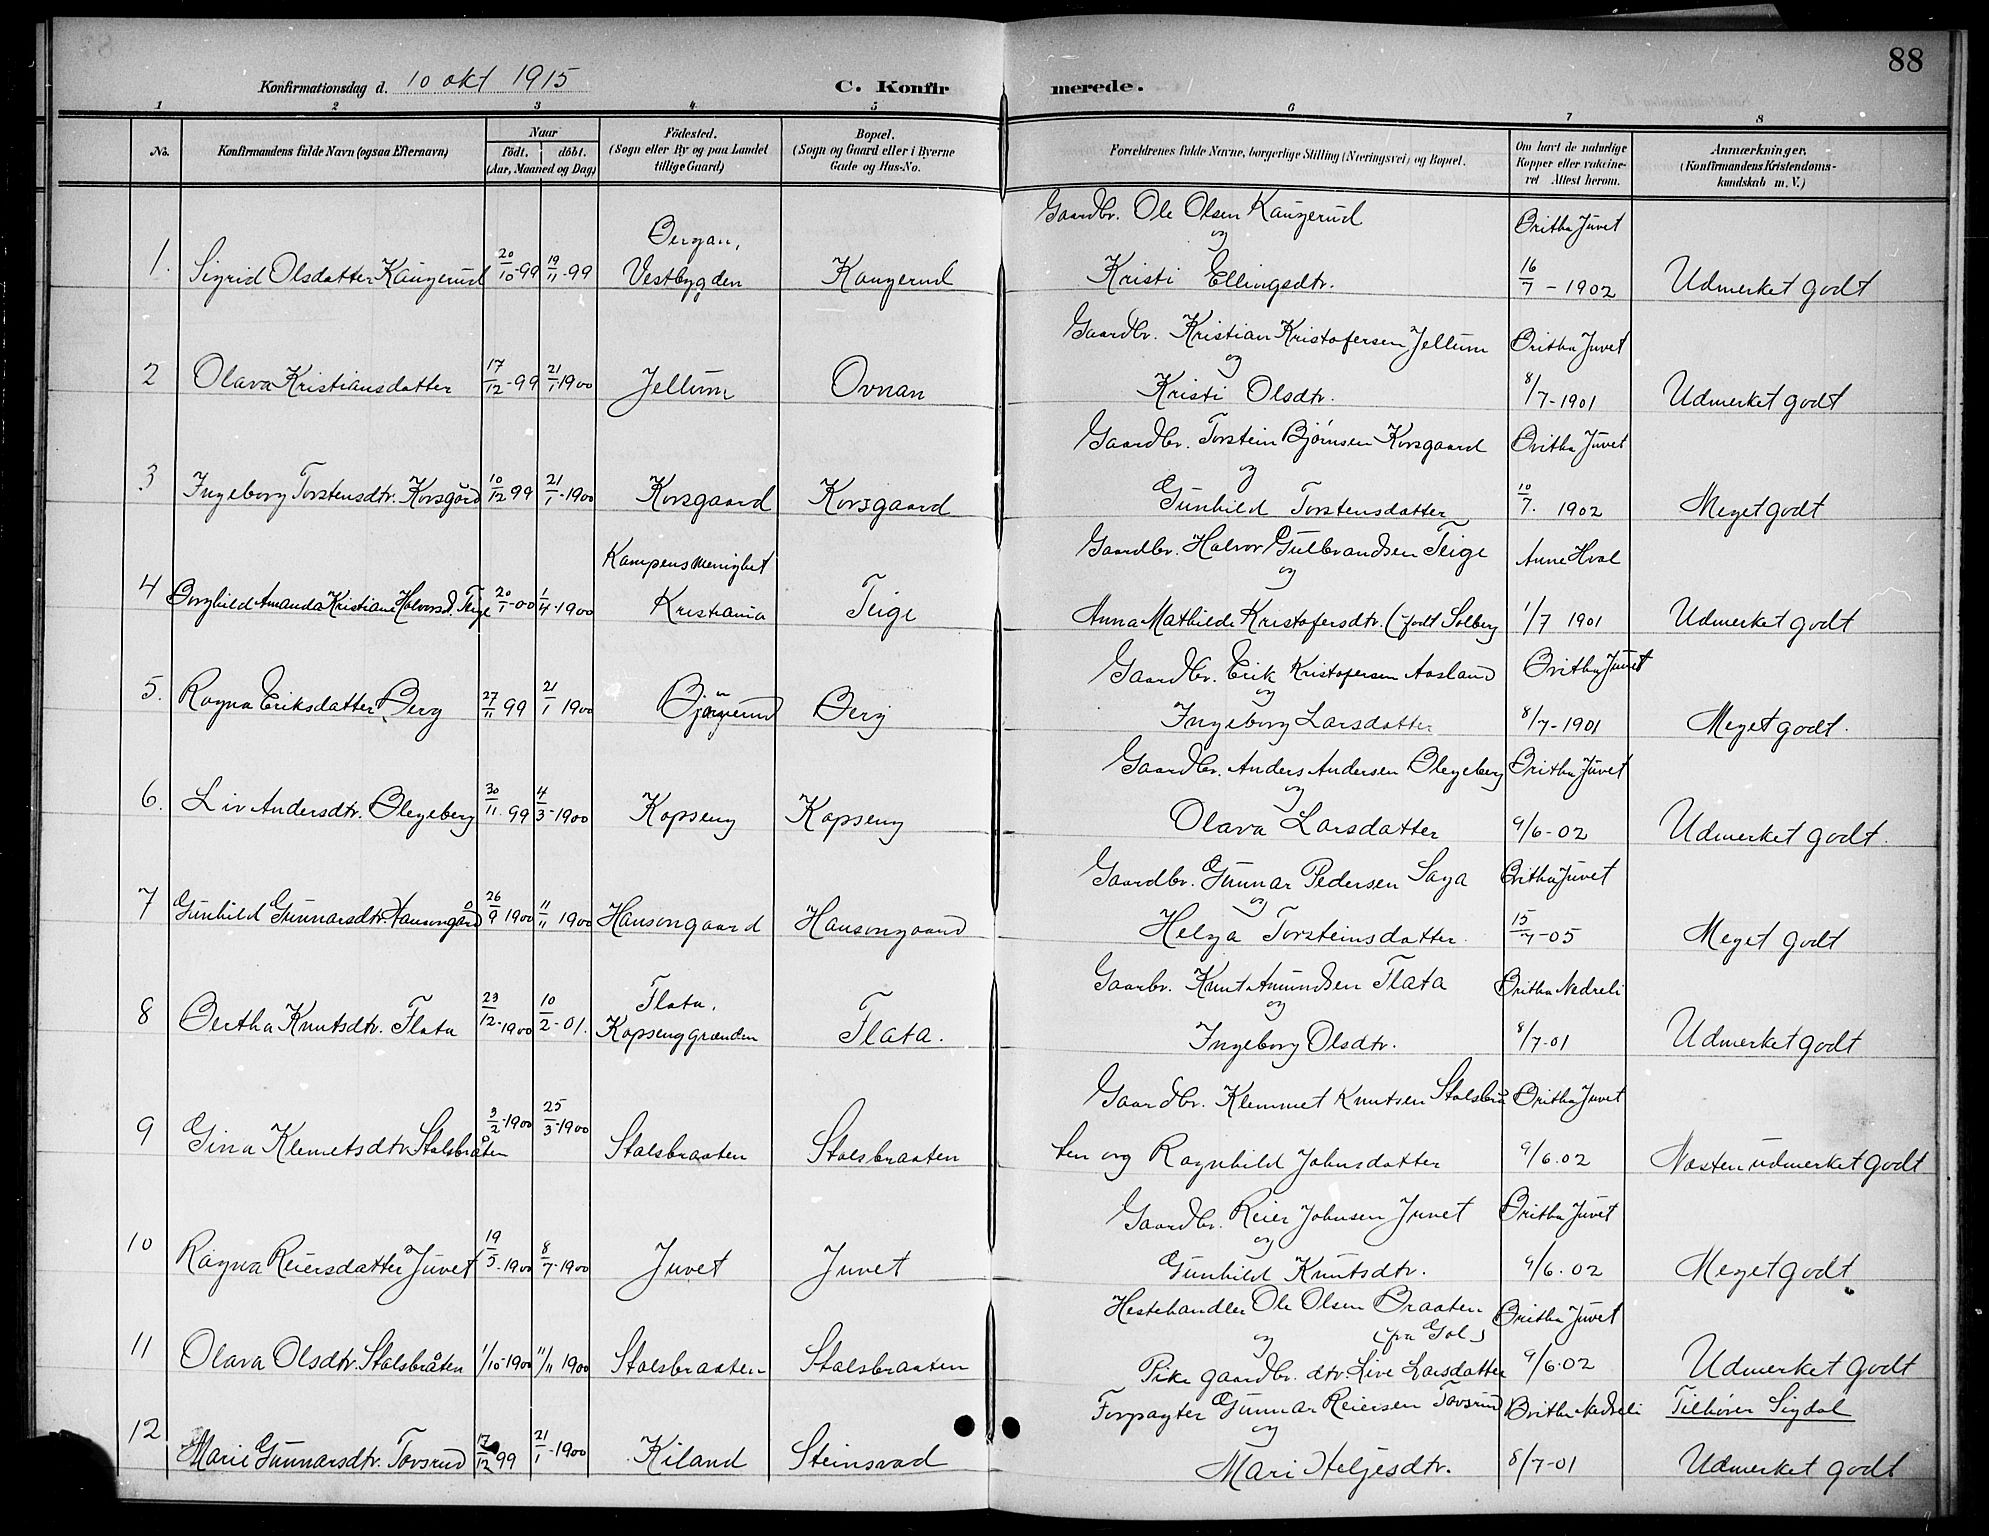 88
Konfirmationsdag d. 10 okt 1915 C. Konfir merede.
1 2 3 4 5 6 7 8
No.
Konfirmandens fulde Navn (ogsaa Efternavn)
Naar
födt. döbt.
(Aar, Maaned og Dag)
Födested.
(Sogn eller By og paa Landet
tillige Gaard)
Bopæl.
(Sogn og Gaard eller i Byerne
Gade og Hus-No.
Forældrenes fulde Navne, borgerlige Stilling (Næringsvei) og Bopæl.
Om havt de naturlige
Kopper eller vaccine-
ret Attest herom.
Anmærkninger.
(Konfirmandens Kristendoms-
kundskab m. V.)
Bergan, Gaardbr. Ole Olsen Kaugerud Britha Juvet
og
1. Sigrid Olsdatter Kaugerud 20/10-99 19/11-99 Vestbygden Kaugerud Kristi Ellingsdtr. 16/7 - 1902 Udmerket godt
Gaardbr. Kristian Kristofersen Jellum Britha Juvet
og
2 Olava Kristiansdatter 17/12-99 21/1 1900 Jellum Ovnan Kristi Olsdtr. 8/7-1901 Udmerket godt
Gaardbr. Torstein Bjørnsen Korsgaard Britha Juvet
og
3 Ingeborg Torstensdtr. Korsgård 10/12 99 21/1-1900 Korsgaard Korsgaard Gunhild Torstensdatter 10/7. 1902 Meget godt
Kampens menighet Gaardbr. Halvor Gulbrandsen Teige Anne Hval
og
4 Borghild Amanda Kristiane Halvorsd. Teige 20/1-00 1/4-1900 Kristiania Teige Anna Mathilde Kristofersdtr. (født Solberg 1/7 1901 Udmerket godt
Gaardbr. Erik Kristofersen Aasland Britha Juvet
og
5. Ragna Eriksdatter Berg 27/11 99 21/1 1900 Bjørgerud Berg Ingeborg Larsdatter 8/7-1901 Meget godt.
Gaardbr. Anders Andersen Blegeberg Britha Juvet
og
6. Liv Andersdtr. Blegeberg 30/11. 99 4/3-1900 Kopseng Kopseng Olava Larsdatter 9/6-02 Udmerket godt.
Gaardbr. Gunnar Pedersen Saga Britha Juvet
og
7 Gunhild Gunnarsdtr. Hansongård 26/9 1900 11/11 1900 Hansongaard Hansongaard Helga Torsteinsdatter. 15/7-05 Meget godt
Flata, Gaarbr. Knut Amundsen Flata Britha Nedreli
og
8 Bertha Knutsdtr. Flata 23/12-1900 10/2-01. Kopsenggrænden Flata. Ingeborg Olsdtr. 8/7-01 Udmerket godt
Gaardbr. Klemmet Knutsen Stalsbra Britha Juvet
9 Gina Klemetsdtr. Stalsbråten 3/2-1900 25/3-1900 Stalsbraaten Stalsbraaten ten og Ragnhild Johnsdatter 9/6.02 Næsten udmerket godt
Gaardbr. Reier Johnsen Juvet Britha Juvet
og
10 Ragna Reiersdatter Juvet 19/5.1900 8/7-1900 Juvet Juvet Gunhild Knutsdtr. 9/6.02 Meget godt
Hestehandler Ole Olsen Braaten Britha Juvet
og (fra Gol)
11 Olava Olsdtr. Stalsbråten 1/10-1900 11/11 1900 Stalsbraaten Stalsbraaten Pike gaardbr. dtr. Live Larsdatter 9/6.02 Udmerket godt
Forpagter Gunnar Reiersen Tovsrud Britha Nedreli Tilhører Sigdal
og
12 Marie Gunnarsdtr. Tovsrud 17/12 99 21/1-1900 Kiland Steinsvad Mari Heljesdtr. 8/7-01 Udmerket godt